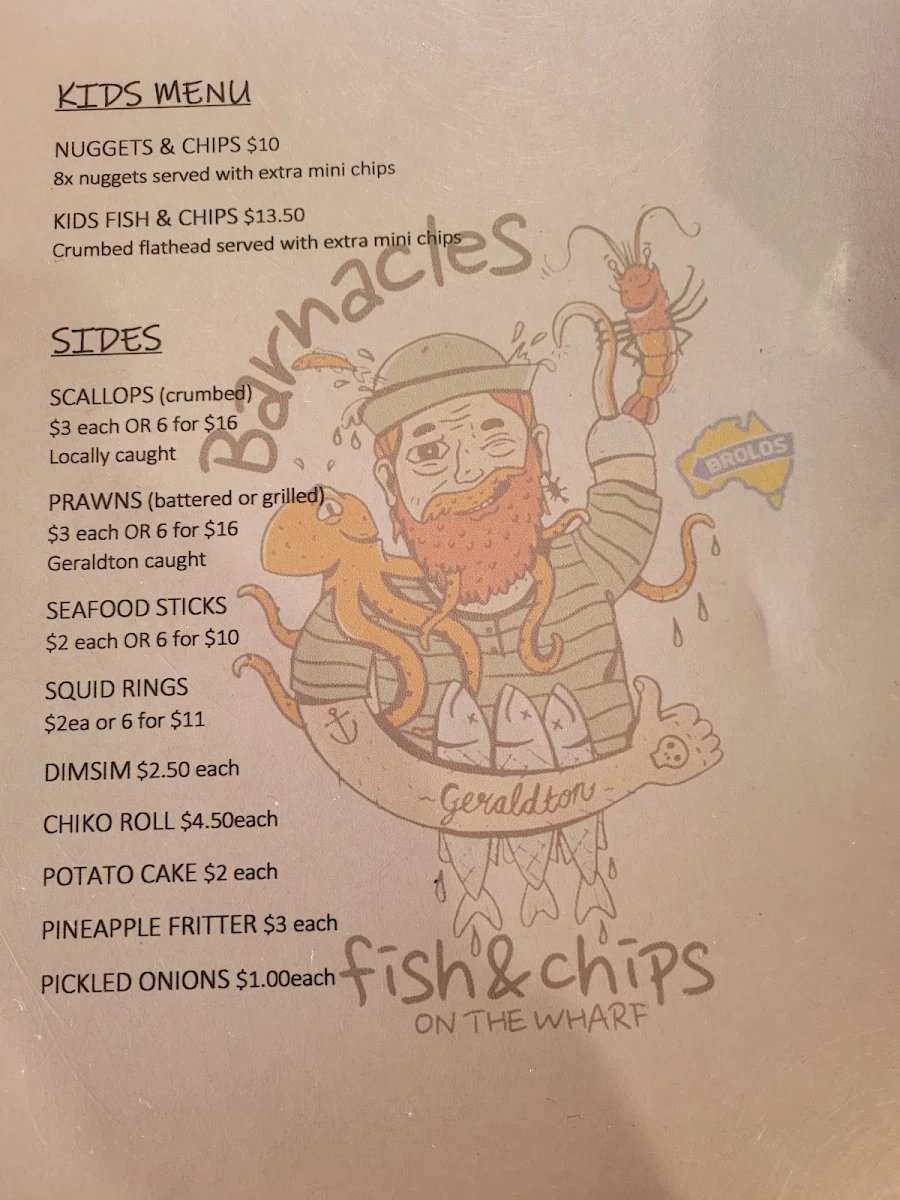 KIDS MENU
NUGGETS & CHIPS $10
8x nuggets served with extra mini chips
KIDS FISH & CHIPS $13.50
Crumbed flathead served with extra mini chips
Barnacles
SIDES
SCALLOPS (crumbed)
$3 each OR 6 for $16
Locally caught
BROLOS
PRAWNS (battered or grilled)
$3 each OR 6 for $16
Geraldton caught
SEAFOOD STICKS
$2 each OR 6 for $10
SQUID RINGS
$2ea or 6 for $11
DIMSIM $2.50 each
~Geraldton~
CHIKO ROLL $4.50each
POTATO CAKE $2 each
PINEAPPLE FRITTER $3 each
PICKLED ONIONS $1.00each
fish & chips
ON THE WHARF